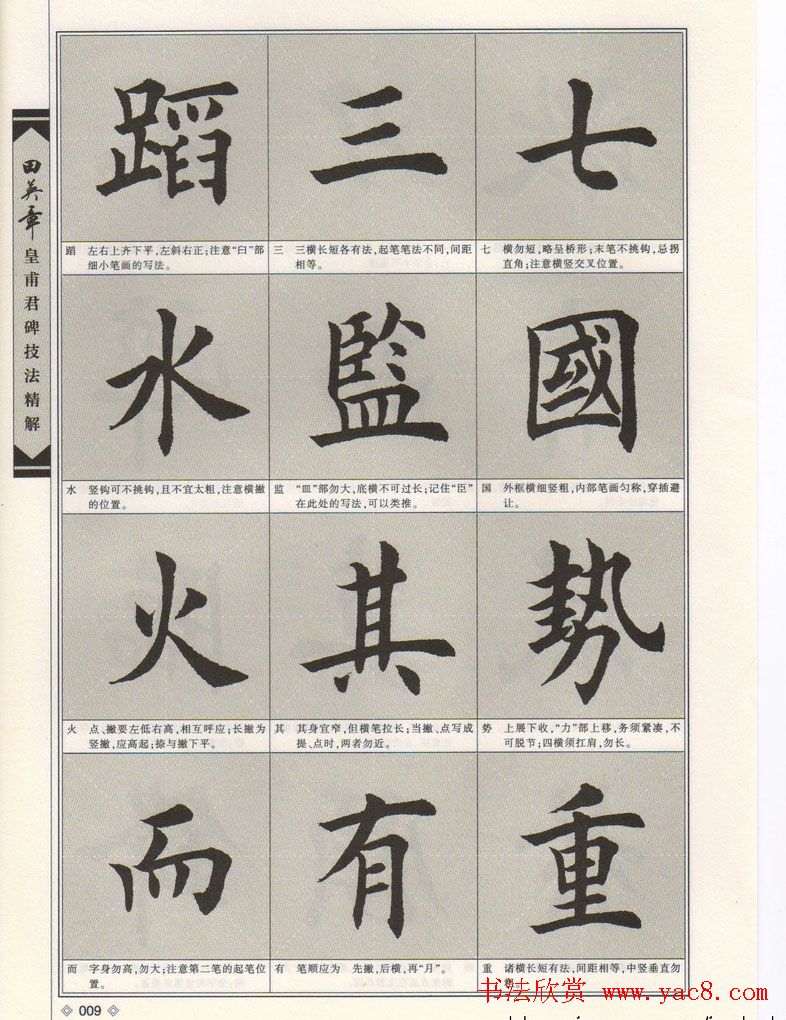 田英章
皇甫君碑技法精解
蹈 三 七
蹈 左右上齐下平，左斜右正；注意“臼”部
细小笔画的写法。
三 三横长短各有法，起笔笔法不同，间距
相等。
七 横勿短，略呈桥形；末笔不挑钩，忌拐
直角；注意横竖交叉位置。
水 監 國
水 竖钩可不挑钩，且不宜太粗，注意横撇
的位置。
监 “皿”部勿大，底横不可过长；记住“臣”
在此处的写法，可以类推。
国 外框横细竖粗，内部笔画匀称，穿插避
让。
火 其 勢
火 点、撇要左低右高，相互呼应；长撇为
竖撇，应高起；捺与撇下平。
其 其身宜窄，但横笔拉长；当撇、点写成
提、点时，两者勿近。
势 上展下收，“力”部上移，务须紧凑，不
可脱节；四横须扛肩，勿长。
而 有 重
而 字身勿高，勿大；注意第二笔的起笔位
置。
有 笔顺应为 先撇，后横，再“月”。
重 诸横长短有法，间距相等，中竖垂直勿
书法欣赏 www.yac8.com
009